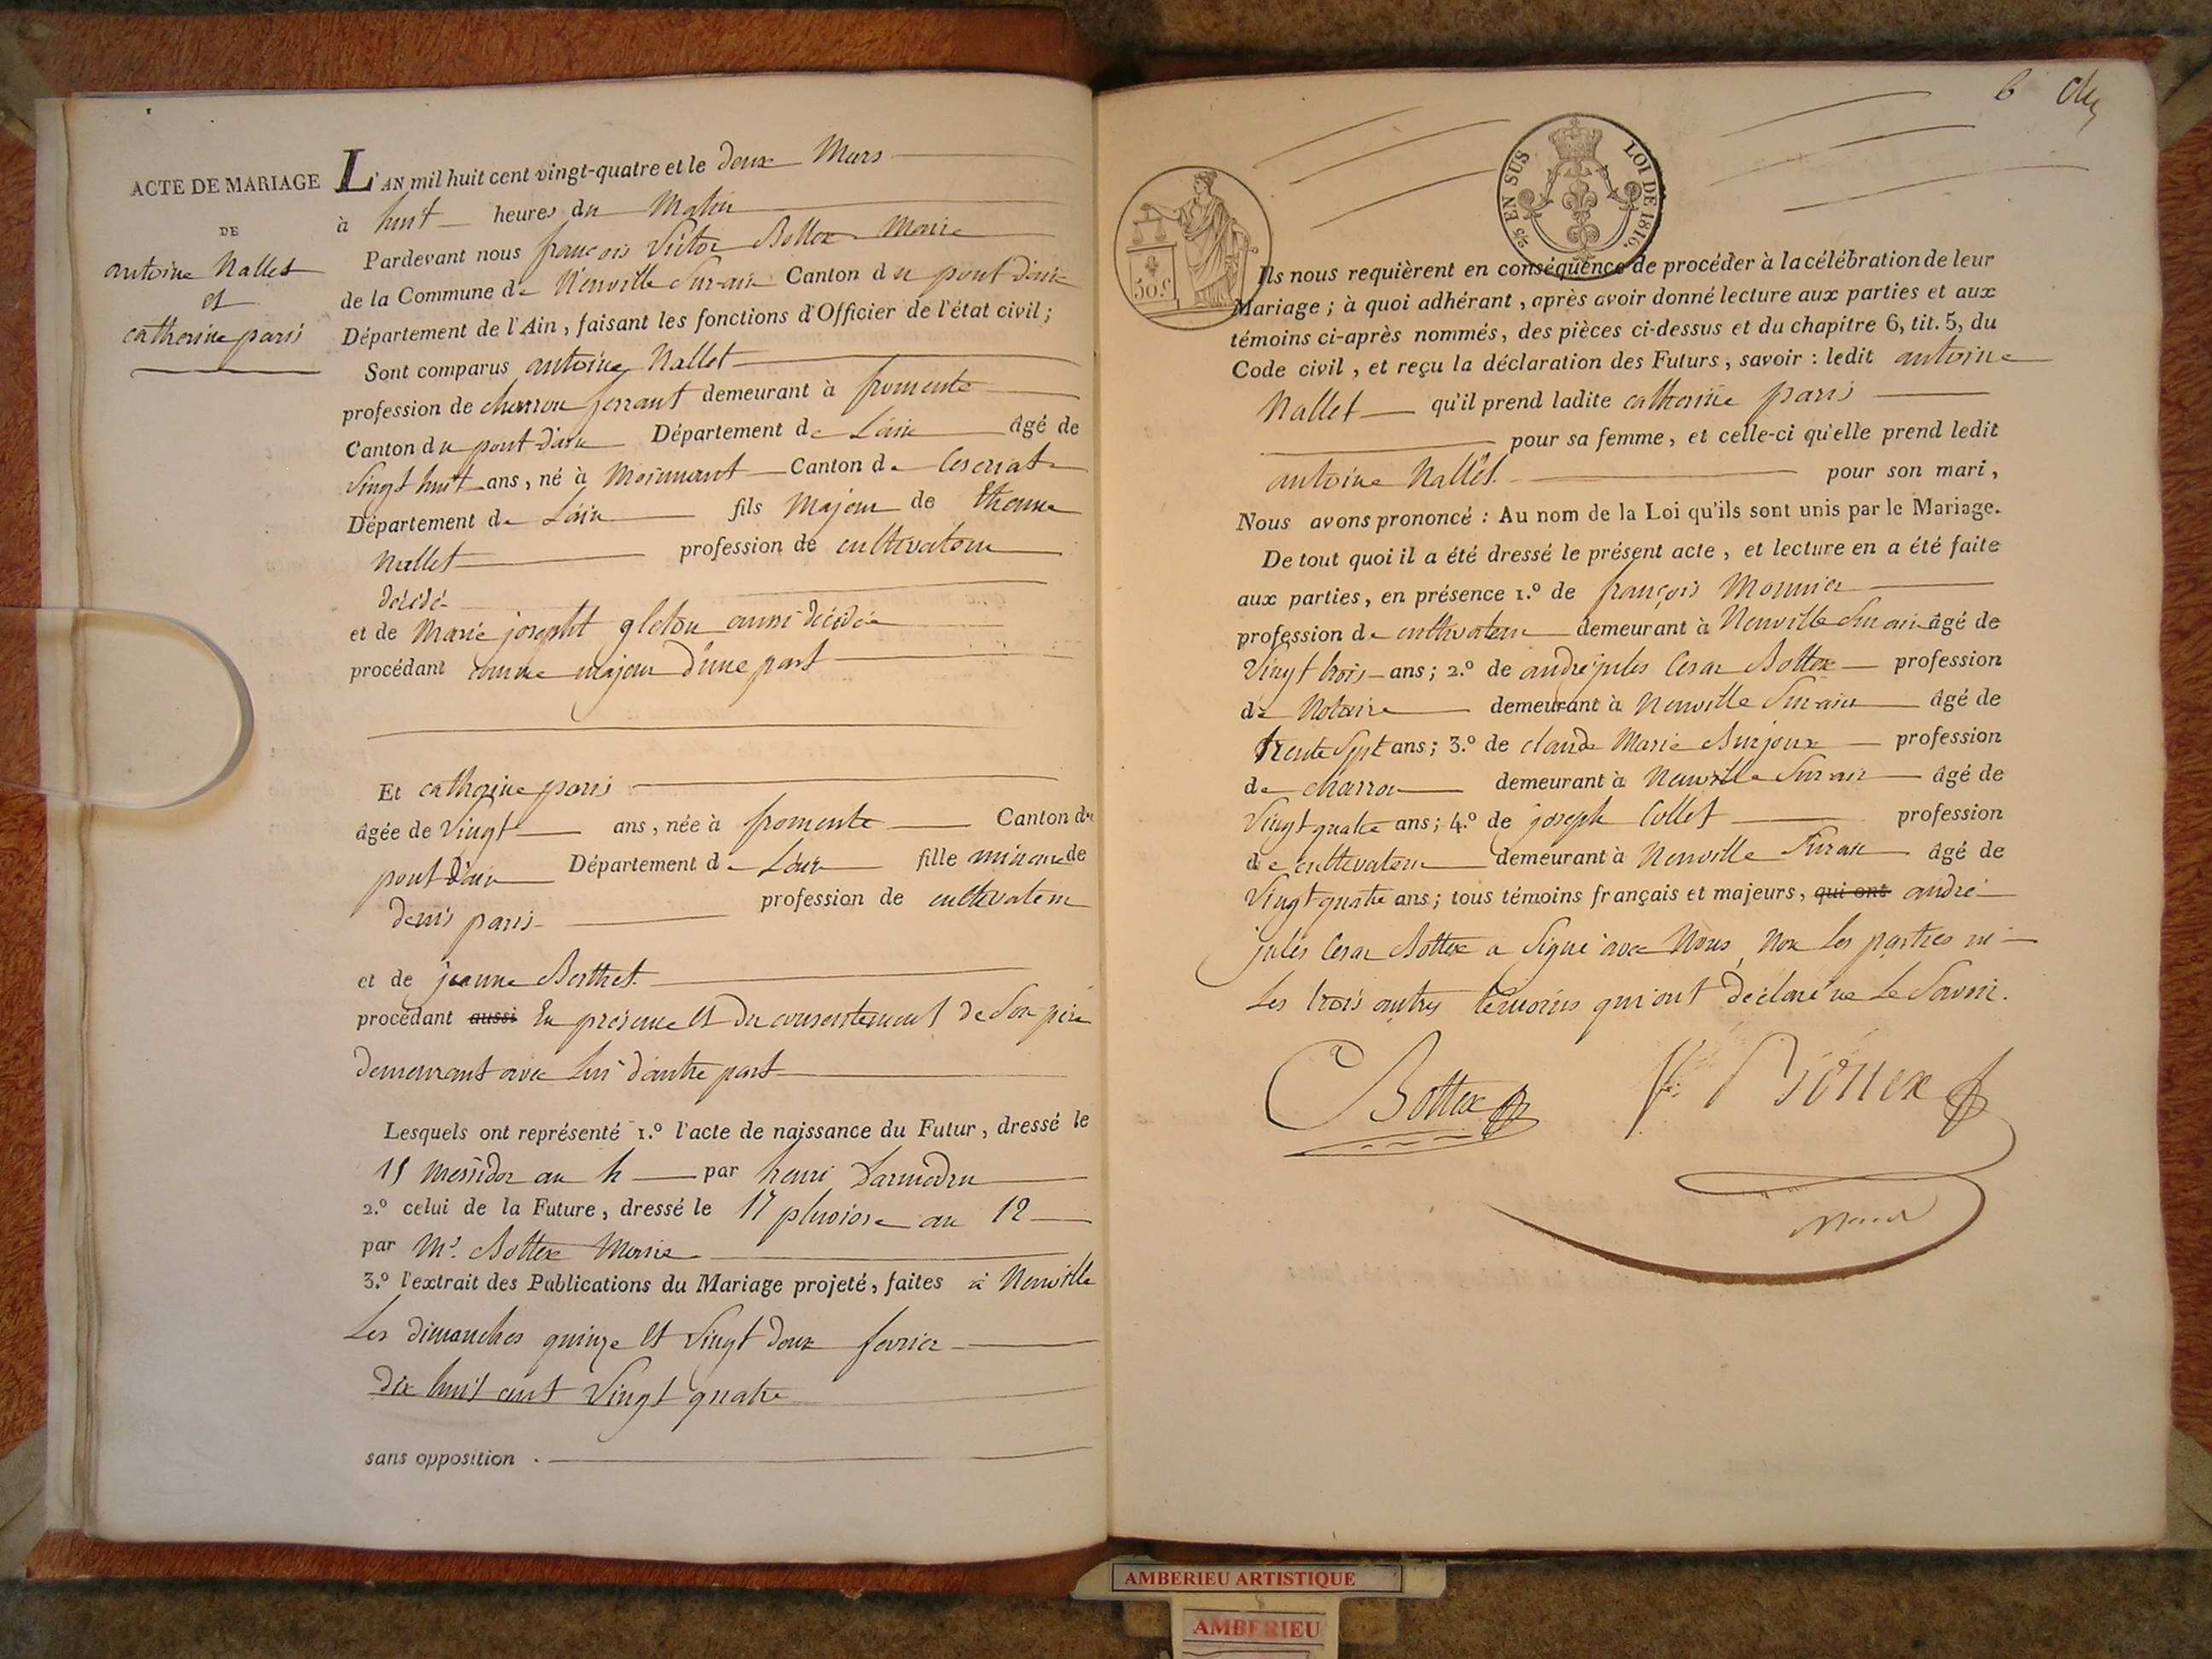 ACTE DE MARIAGE
DE
antoine Nallet
et
catherine paris
L'AN mil huit cent vingt-quatre et le deux Mars
à huit heures du Matin
Pardevant nous françois Victor Bottex Maire
de la Commune de Neuville Sur-ain Canton du pont d'ain
Département de l'Ain, faisant les fonctions d'Officier de l'état civil;
Sont comparus antoine Nallet
profession de charron ferrant demeurant à fromente
Canton du pont d'ain Département de L'ain âgé de
Vingt huit ans, né à Meinant Canton de Ceseriat
Département de L'ain fils Majeur de Etienne
Nallet profession de cultivateur
décédé
et de Marie josepht gleton aussi décédée
procédant comme majeur d'une part
Et catherine paris
âgée de Vingt ans, née à fromente Canton du
pont d'ain Département de L'ain fille mineure de
denis paris profession de cultivateur
et de jeanne Berthet
procédant aussi En présence et du consentement de Son père
demeurant avec Lui d'autre part
Lesquels ont représenté 1.º l'acte de naissance du Futur, dressé le
15 messidor an 4 par henri Darmedru
2.º celui de la Future, dressé le 17 pluviose an 12
par Mr. Bottex Maire
3.º l'extrait des Publications du Mariage projeté, faites à Neuville
Les dimanches quinze et Vingt deux fevrier
dix huit cent Vingt quatre
sans opposition.
6
EN SUS LOI DE 1816.
50 c
Ils nous requièrent en conséquence de procéder à la célébration de leur
Mariage; à quoi adhérant, après avoir donné lecture aux parties et aux
témoins ci-après nommés, des pièces ci-dessus et du chapitre 6, tit. 5, du
Code civil, et reçu la déclaration des Futurs, savoir: ledit antoine
Nallet qu'il prend ladite catherine paris
pour sa femme, et celle-ci qu'elle prend ledit
antoine Nallet. pour son mari,
Nous avons prononcé: Au nom de la Loi qu'ils sont unis par le Mariage.
De tout quoi il a été dressé le présent acte, et lecture en a été faite
aux parties, en présence 1.º de françois Monnier
profession de cultivateur demeurant à Neuville Sur ain âgé de
Vingt trois ans; 2.º de andré jules Cesar Bottex profession
de Notaire demeurant à Neuville Sur ain âgé de
trente Sept ans; 3.º de claude Marie Burjoux profession
de charron demeurant à Neuville Sur ain âgé de
Vingt quatre ans; 4.º de joseph Collet profession
de cultivateur demeurant à Neuville Sur ain âgé de
Vingt quatre ans; tous témoins français et majeurs, qui ont andré
jules Cesar Bottex a Signé avec Nous, Non Les parties ni
Les trois autres témoins qui ont déclaré ne Le Savoir.
Bottex
Bottex
AMBERIEU ARTISTIQUE
AMBERIEU